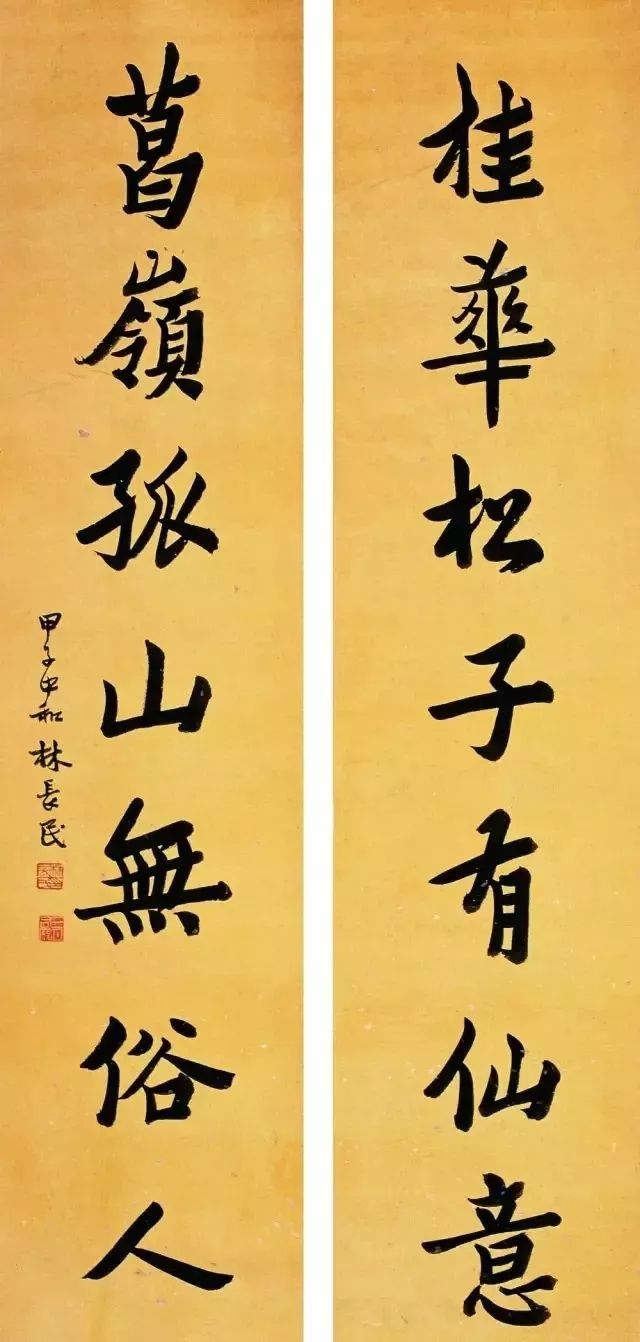 桂華松子有仙意
葛嶺孤山無俗人
甲子中和林長民